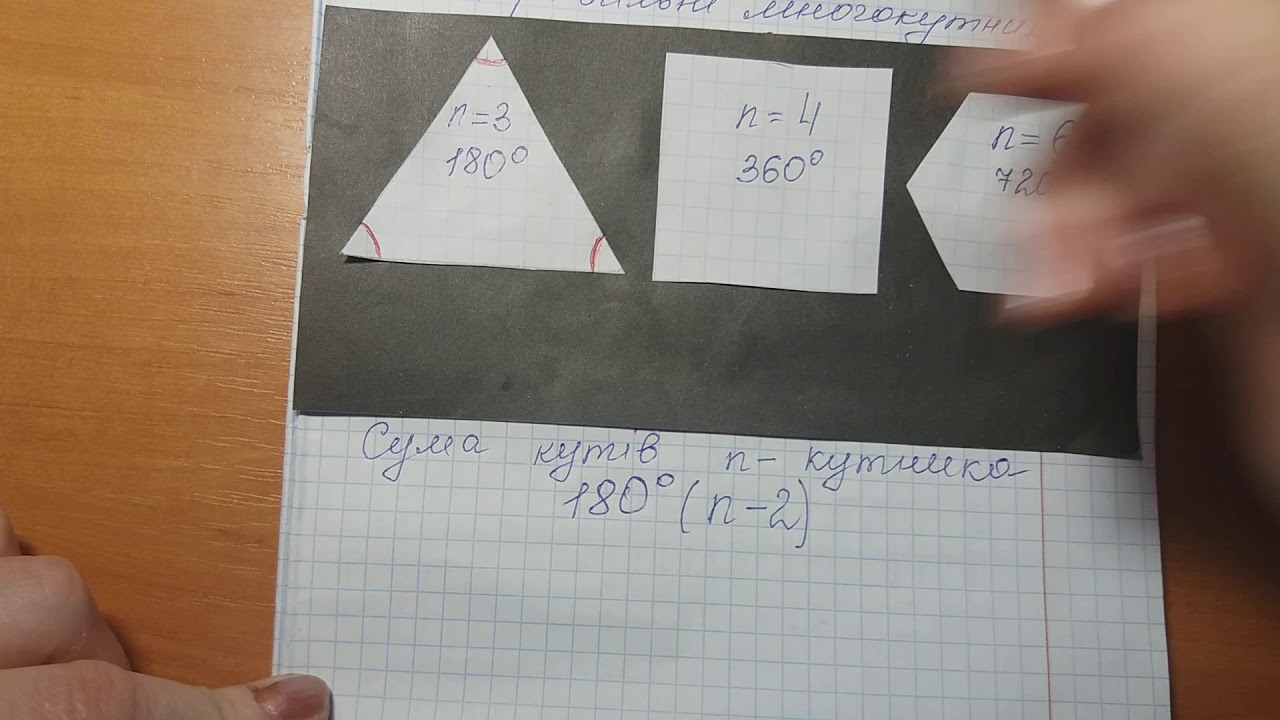 многокутни
n=3
180°
n=4
360°
n=
72
Сума кутів n-кутника
180°(n-2)